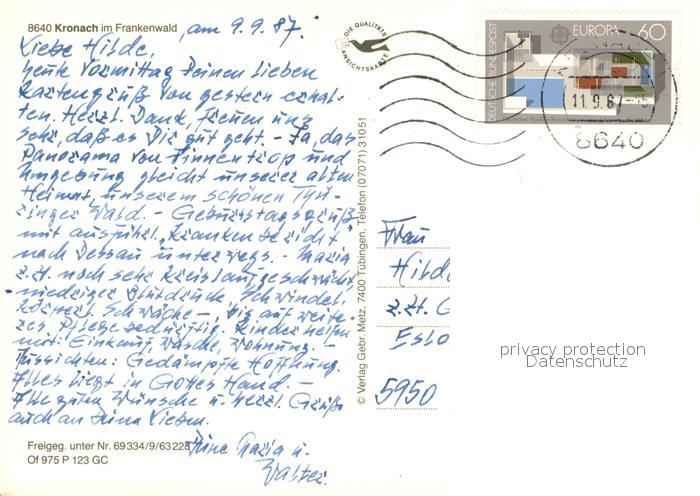 8640 Kronach im Frankenwald
am 9.9.87.
Liebe Hilde,
heute Vormittag Deinen lieben
Kartengruß von gestern erhal-
ten. Herzl. Dank, freuen uns
sehr, daß es Dir gut geht. - Ja, das
Panorama von Finnentrop und
Umgebung gleicht unserer alten
Heimat, unserem schönen Thü-
ringer Wald. - Geburtstagsgrüße
mit ausführl. "Krankenbericht"
nach Dessau unterwegs. - Maria
z.Zt. noch sehr kreislaufgeschwächt
- niedriger Blutdruck, Schwindel,
körperl. Schwäche -, bis auf weite-
res Pflegebedürftig. Kinder helfen
mit: Einkauf, Wäsche, Wohnung. -
Aussichten: Gedämpfte Hoffnung.
Alles liegt in Gottes Hand. -
Alle guten Wünsche u. herzl. Grüße
auch an Deine Lieben.
Deine Maria u.
Walter.
Freigeg. unter Nr. 69334/9/63228
Of 975 P 123 GC
DIE QUALITÄTS
ANSICHTSKARTE
© Verlag Gebr. Metz, 7400 Tübingen, Telefon (07071) 31051
DEUTSCHE BUNDESPOST
EUROPA 60
11.9.87
8640
Frau
Hild
z.Zt. G
Eslo
5950
privacy protection
Datenschutz